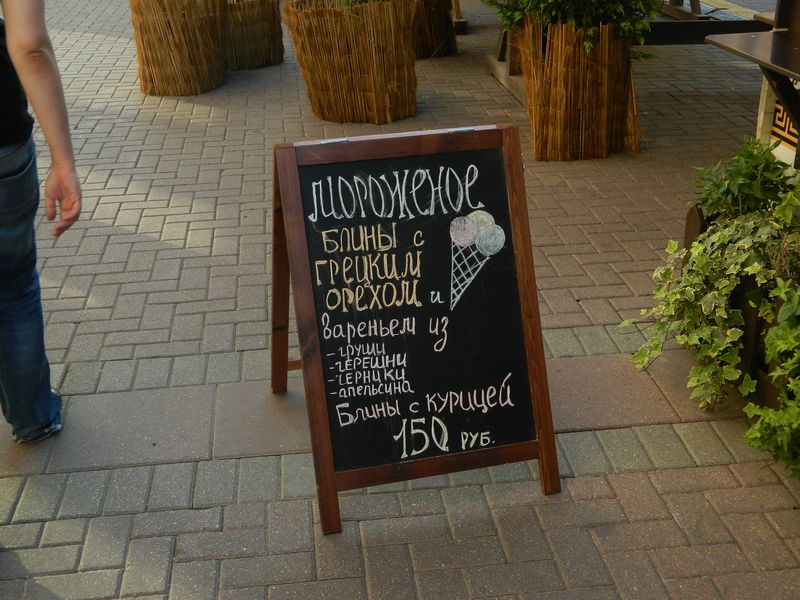 мороженое
Блины с
грецким
орехом и
вареньем из
- груши
- черешни
- черники
- апельсина
Блины с курицей
150 руб.